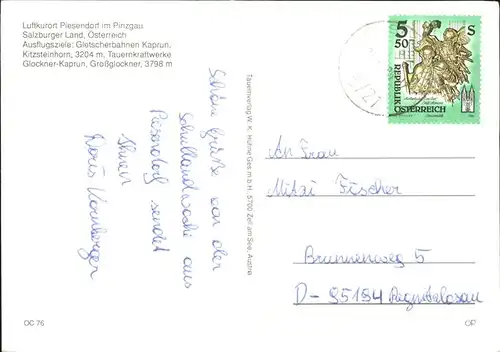 Luftkurort Piesendorf im Pinzgau
Salzburger Land, Österreich
Ausflugsziele: Gletscherbahnen Kaprun,
Kitzsteinhorn, 3204 m, Tauernkraftwerke
Glockner-Kaprun, Großglockner, 3798 m
Schöne Grüße von der
Schullandwoche aus
Piesendorf sendet
Ihnen
Doris Kornberger
Tauernverlag W. K. Hühne Ges.m.b.H. 5700 Zell am See, Austria
5 S
50
REPUBLIK
ÖSTERREICH
An Frau
Mitzi Fischer
Brunnenweg 5
D- 95194 Regnitzlosau
OC 76
OP